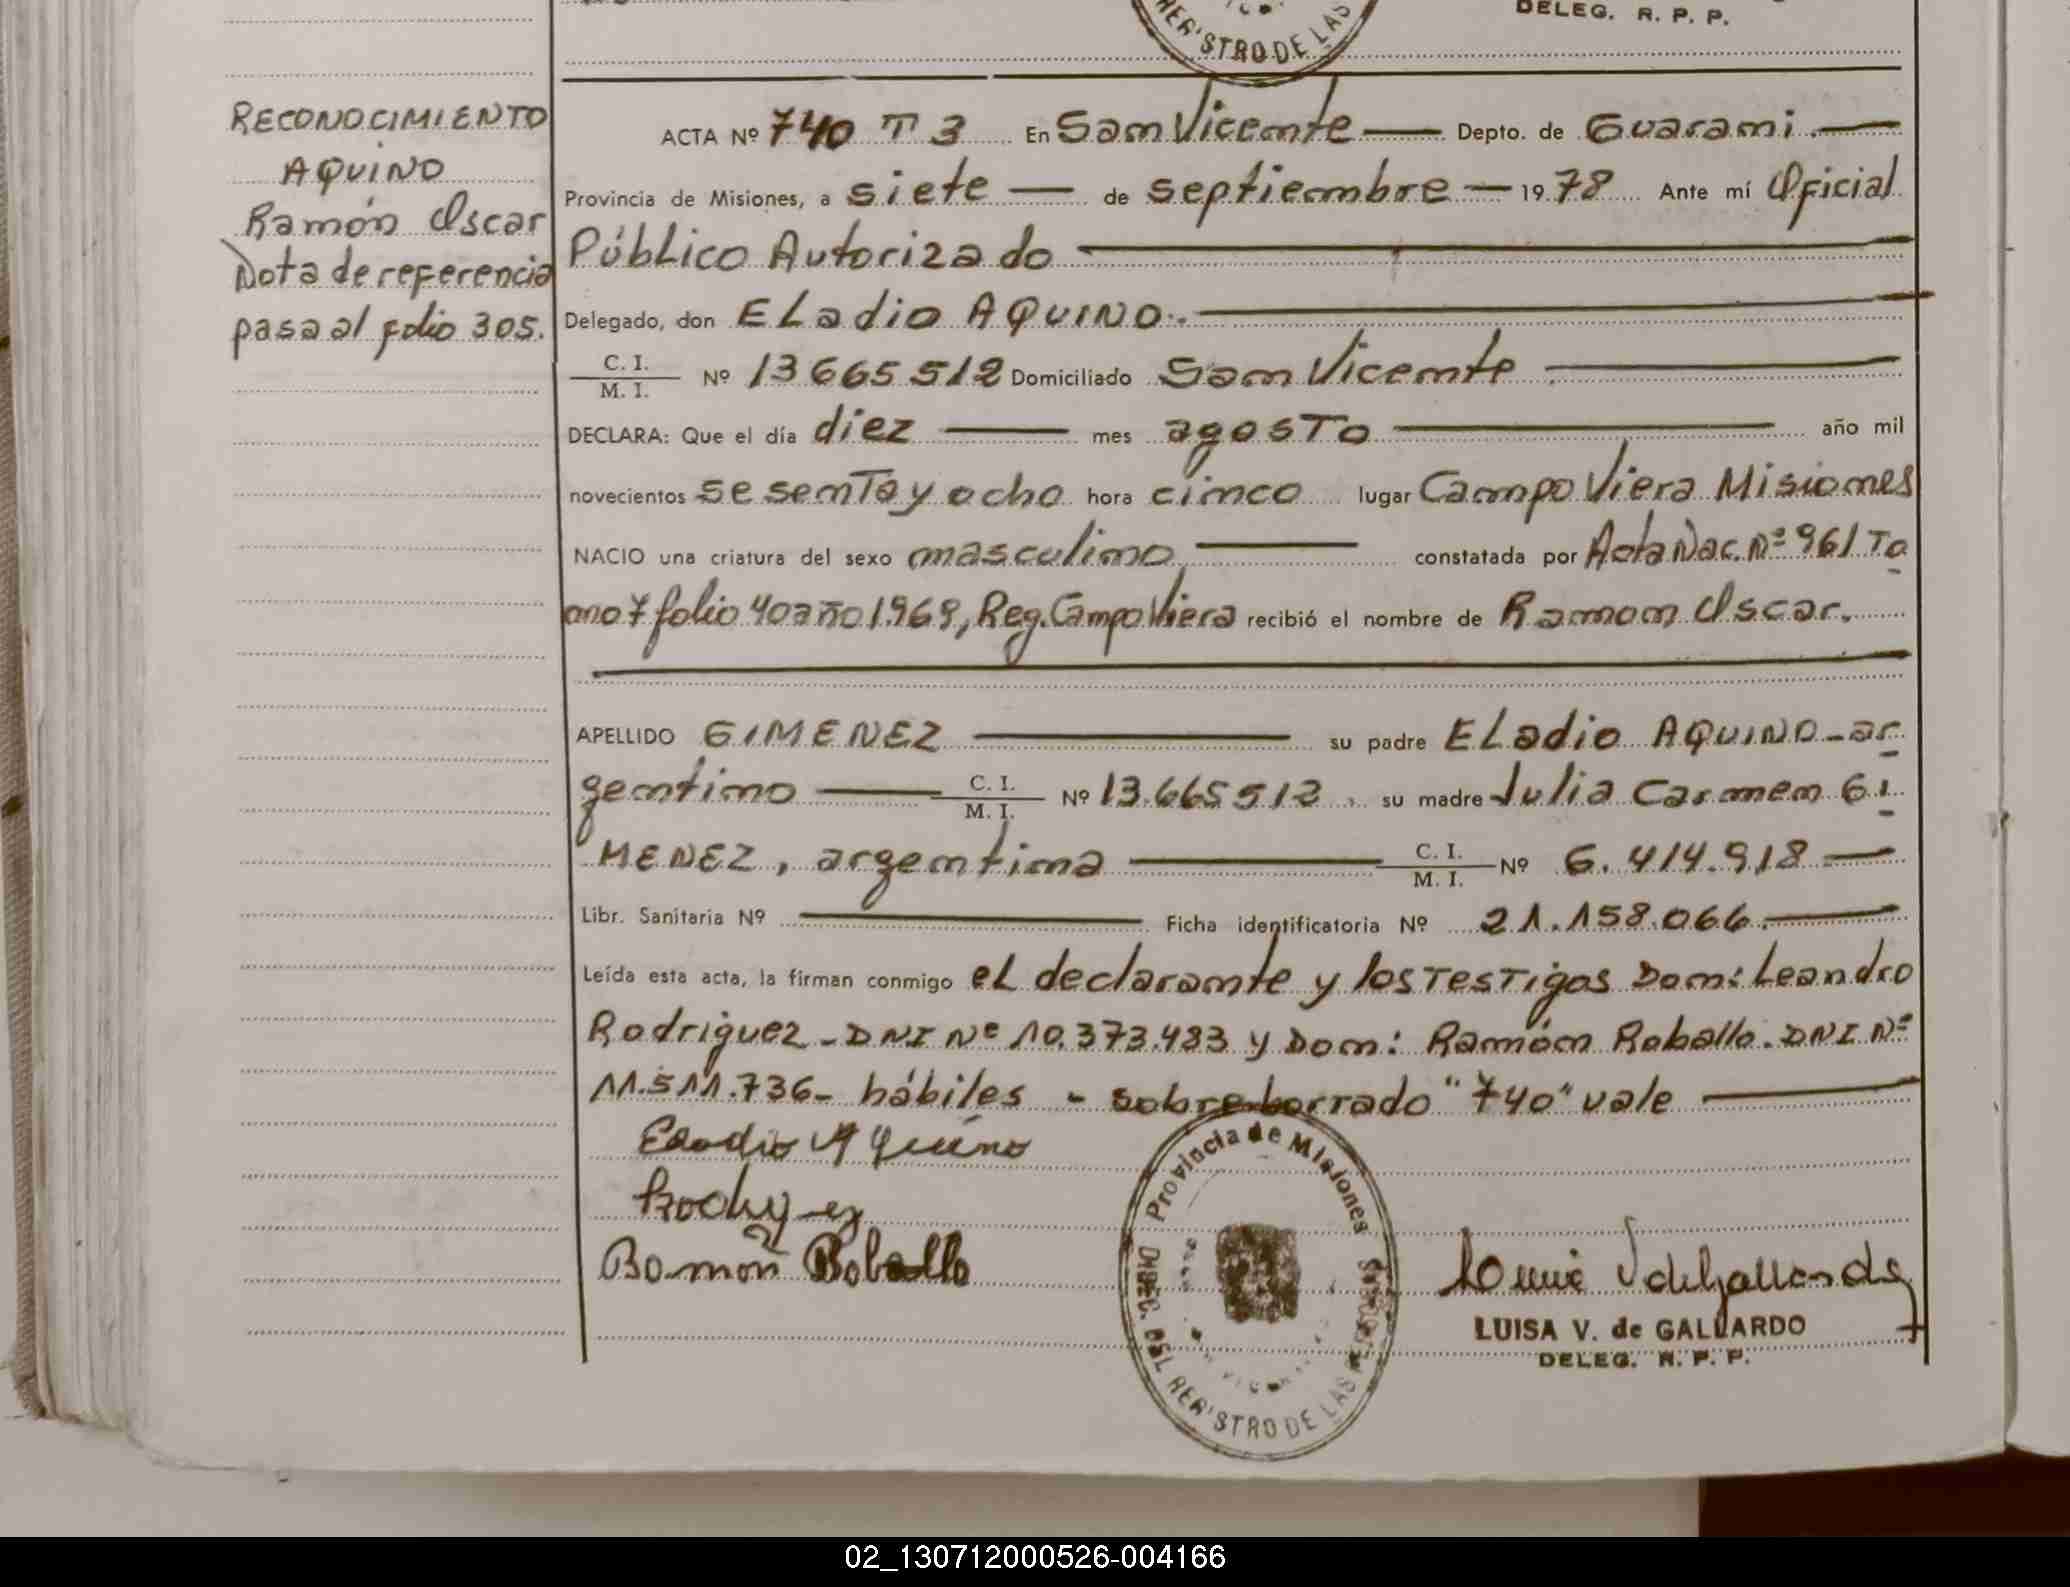 DELEG. R. P. P.
REG'STRO DE LAS
RECONOCIMIENTO
AQUINO
Ramón Oscar
Nota de referencia
pasa al folio 305.
ACTA Nº 740 T 3 En San Vicente Depto. de Guarani.
Provincia de Misiones, a siete de septiembre 1978 Ante mí Oficial
Público Autorizado
Delegado, don ELadio AQUINO.
C. I.
M. I. Nº 13665512 Domiciliado San Vicente
DECLARA: Que el día diez mes agosto año mil
novecientos sesenta y ocho hora cinco lugar Campo Viera Misiones
NACIO una criatura del sexo masculino constatada por Acta Nac. Nº 961 To
mo 7 folio 40 año 1969, Reg. Campo Viera recibió el nombre de Ramon Oscar.
APELLIDO GIMENEZ su padre ELadio AQUINO-ar
gentino C. I.
M. I. Nº 13.665512 su madre Julia Carmen GI
MENEZ, argentina C. I.
M. I. Nº 6.414.918
Libr. Sanitaria Nº Ficha identificatoria Nº 21.158.066.
Leída esta acta, la firman conmigo el declarante y los Testigos Don: Leandro
Rodriguez - DNI Nº 10.373.483 y Don: Ramón Roballo. DNI Nº
11.511.736- hábiles - sobreborrado "740" vale
Eladio Aquino
Ramón Roballo
Provincia de Misiones
DIREC. DEL REG'STRO DE LAS
LUISA V. de GALLARDO
DELEG. R. P. P.
02_130712000526-004166